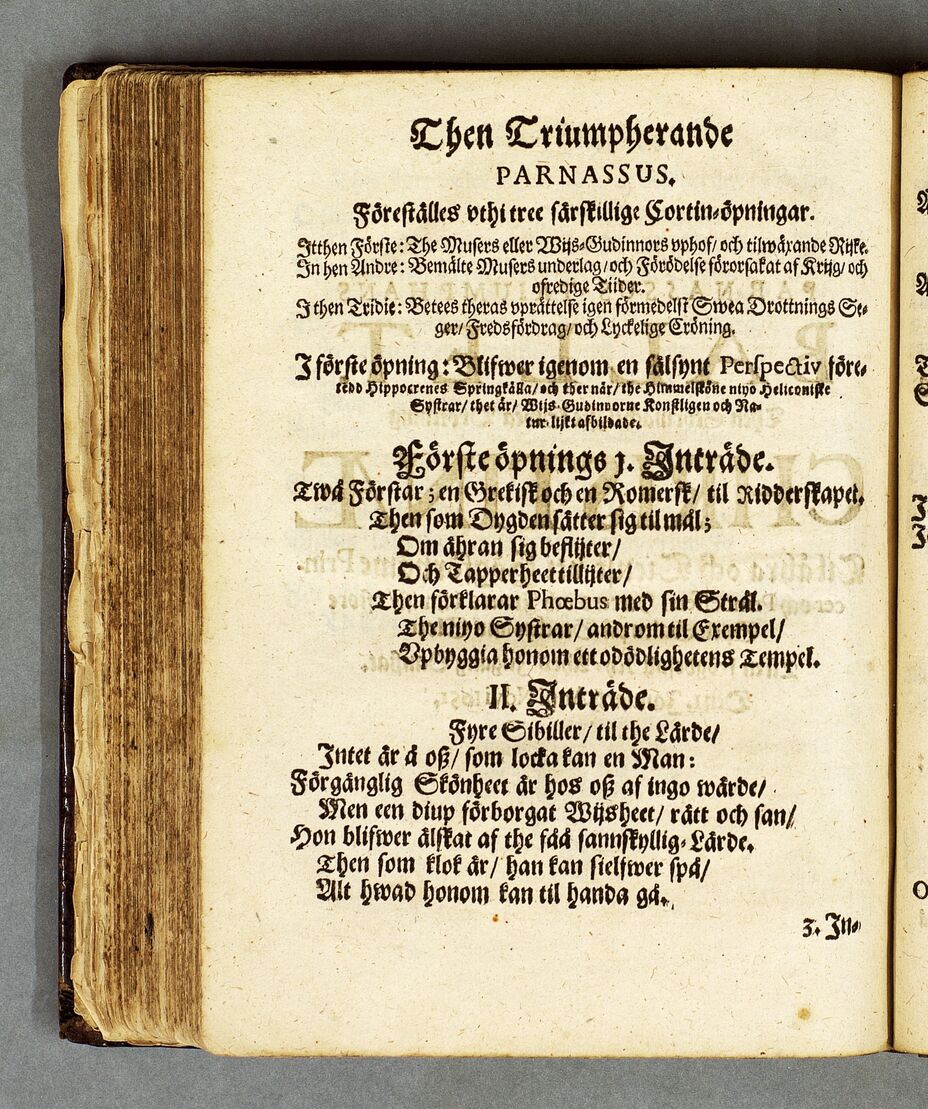 Then Triumpherande
PARNASSUS.
Föreställes vthi tree särskillige Cortin-öpningar.
Itthen Förste: The Musers eller Wijs-Gudinnors vphof/ och tilwäxande Rijke.
In hen Andre: Bemälte Musers underlag/ och Förödelse förorsakat af Krijg/ och
ofredige Tiider.
I then Tridie: Betees theras vprättelse igen förmedelst Swea Drottnings Se-
ger/ Fredsfördrag/ och Lyckelige Cröning.
I förste öpning: Blifwer igenom en sälsynt Perspectiv före-
tedd Hippocrenes Springkälla/ och ther när/ the Himmelsköne niyo Heliconiske
Systrar/ thet är/ Wijs-Gudinnorne Konstligen och Na-
tur-lijkt afbildade.
Förste öpnings 1. Inträde.
Twå Förstar; en Grekisk och en Romersk/ til Ridderskapet.
Then som Dygden sätter sig til mål;
Om ähran sig beflijter/
Och Tapperheet tillijter/
Then förklarar Phœbus med sin Strål.
The niyo Systrar/ androm til Exempel/
Vpbyggia honom ett odödlighetens Tempel.
II. Inträde.
Fyre Sibiller/ til the Lärde/
Intet är å oß/ som locka kan en Man:
Förgänglig Skönheet är hos oß af ingo wärde/
Men een diup förborgat Wijsheet/ rätt och san/
Hon blifwer älskat af the fåå sannskyllig-Lärde.
Then som klok är/ han kan sielfwer spå/
Alt hwad honom kan til handa gå.
3. In-